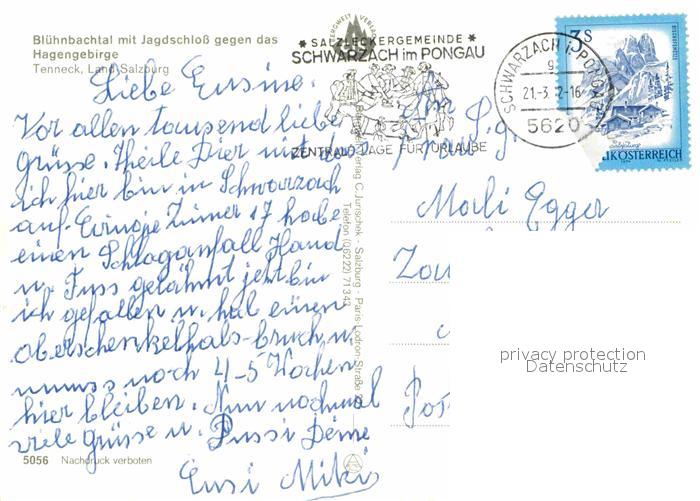 Blühnbachtal mit Jagdschloß gegen das
Hagengebirge
Tenneck, Land Salzburg
SALZLECKERGEMEINDE
SCHWARZACH im PONGAU
ZENTRALE LAGE FÜR URLAUBE
SCHWARZACH i. PONGAU
21.-3. 2-16
5620
3S
ÖSTERREICH
Liebe
Vor allen tausend liebe
Grüsse. Theile Dier mit das
ich hier bin in Schwarzach
auf Zimer 17 habe
einen Schlaganfall Hand
u. Fuss gelähmt jetzt bin
ich gefallen u. hab einen
oberschenkelhals-bruch, u.
muss noch 4-5 Wochen
hier bleiben. Nun nochmal
viele Grüsse u. Pussi Deine
Miki
An
Frau
Mali Egger
Zou
Pos
Verlag C. Jurischek - Salzburg - Paris-Lodron-Straße
Telefon (06222) 71343
privacy protection
Datenschutz
5056 Nachdruck verboten